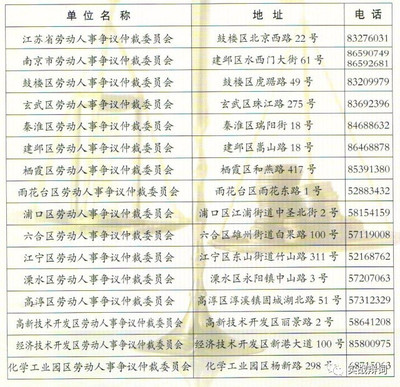 单位名称 地址 电话
江苏省劳动人事争议仲裁委员会 鼓楼区北京西路 22 号 83276031
南京市劳动人事争议仲裁委员会 建邺区水西门大街 61 号 86590749 86592681
鼓楼区劳动人事争议仲裁委员会 鼓楼区虎踞路 49 号 83209979
玄武区劳动人事争议仲裁委员会 玄武区珠江路 275 号 83692396
秦淮区劳动人事争议仲裁委员会 秦淮区瑞阳街 18 号 84688632
建邺区劳动人事争议仲裁委员会 建邺区嵩山路 18 号 86468878
栖霞区劳动人事争议仲裁委员会 栖霞区和燕路 417 号 85391380
雨花台区劳动人事争议仲裁委员会 雨花台区雨花东路 1 号 52883432
浦口区劳动人事争议仲裁委员会 浦口区江浦街道中圣北街 2 号 58154159
六合区劳动人事争议仲裁委员会 六合区雄州街道白果路 100 号 57119008
江宁区劳动人事争议仲裁委员会 江宁区东山街道竹山路 311 号 52168762
溧水区劳动人事争议仲裁委员会 溧水区永阳镇中山路 3 号 57207063
高淳区劳动人事争议仲裁委员会 高淳区淳溪镇固城湖北路 51 号 57312329
高新技术开发区劳动人事争议仲裁委员会 高新技术开发区丽景路 2 号 58641208
经济技术开发区劳动人事争议仲裁委员会 经济技术开发区新港大道 100 号 85800975
化学工业园区劳动人事争议仲裁委员会 化学工业园区杨新路 298 号 68715063